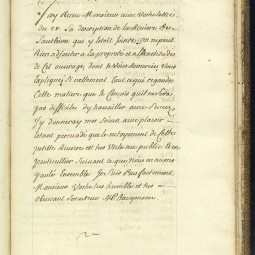 J'ay Receu Monsieur avec Vostre lettre
du 28 La description de la Riviere de
qui y estoit Jointe, On ne peut
Rien adjouter a la propreté et a l'exactitude
de Cet ouvrage, dans le Vous
Expliqués si nettement tout ce qui regarde
Cette matiere que Je Conçois qu'il ne sera
pas difficile d'y travailler avec Succes
J'y donneray mes soins avec plaisir
estant persuadé que le netoyement de cette
petitte Riviere est tres Utile au public et en
particullier suivant ce que nous en avons
parlé Ensemble Je suis Parfaitement
Monsieur Vostre tres humble et tres
obeissant Serviteur